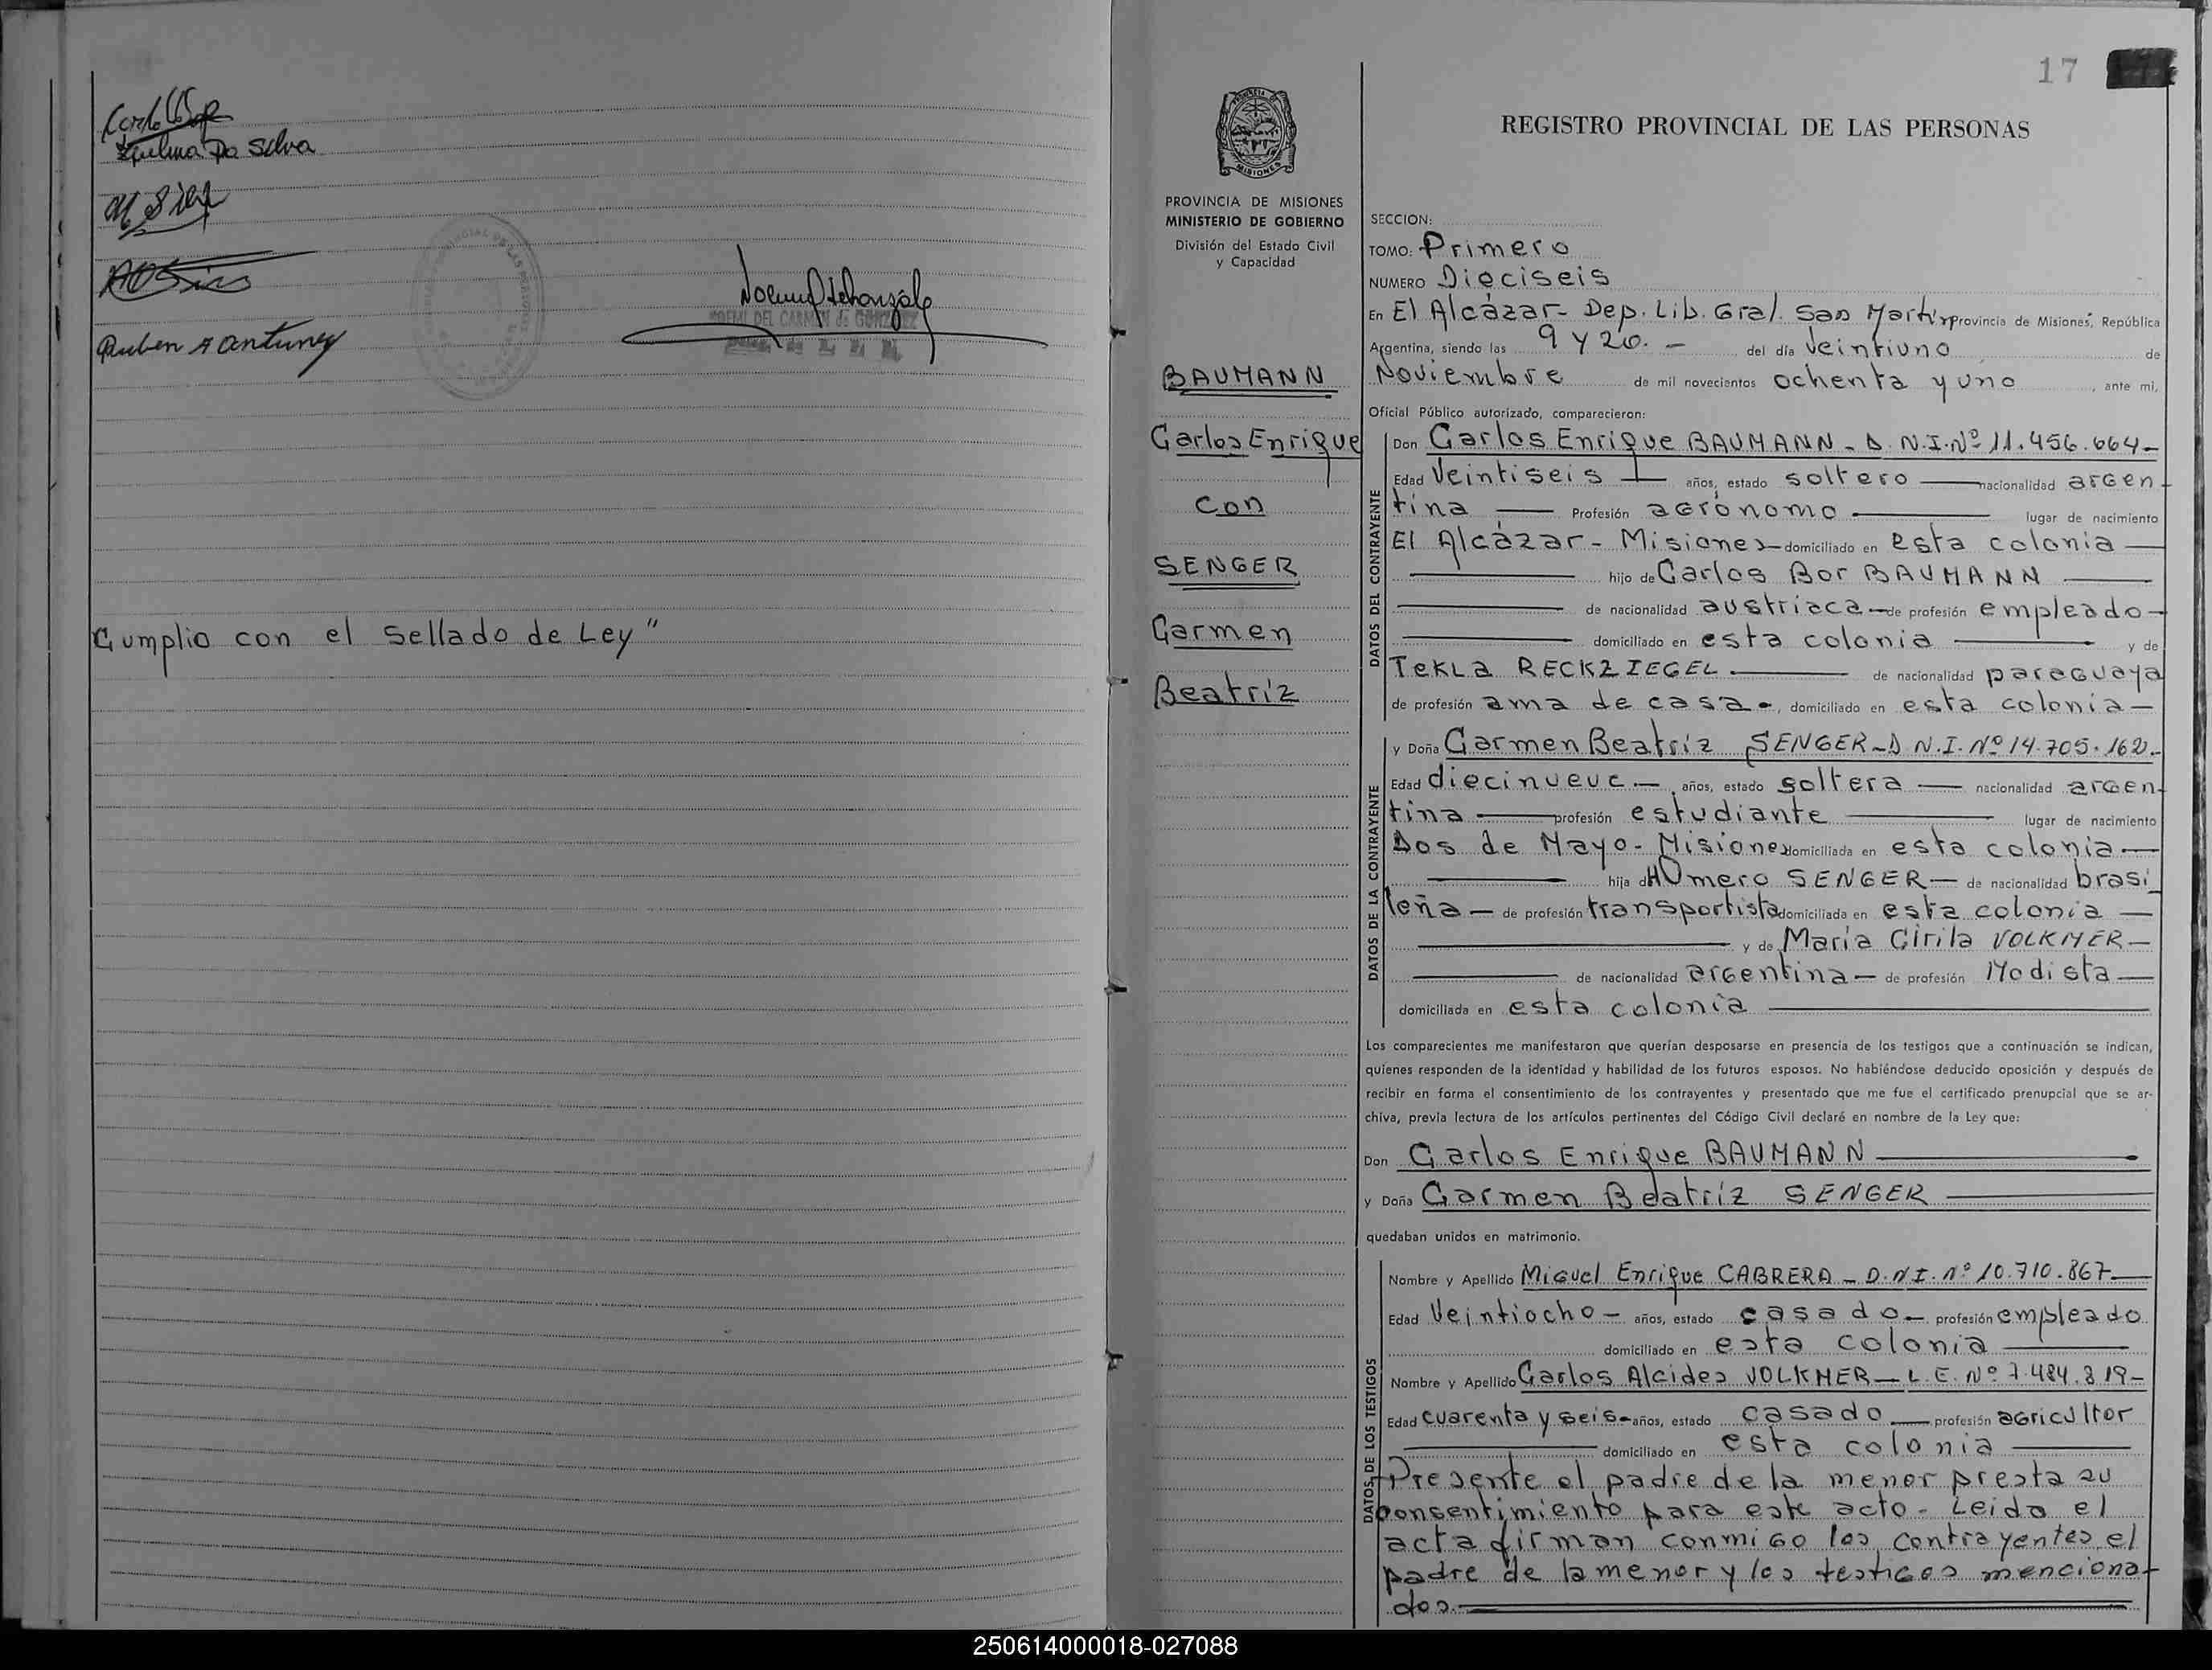 Da Silva
Ruben A Antunez
NOEMI DEL CARMEN de GONZALEZ
Cumplio con el sellado de Ley"
17
REGISTRO PROVINCIAL DE LAS PERSONAS
MISIONES
PROVINCIA DE MISIONES
MINISTERIO DE GOBIERNO
División del Estado Civil
y Capacidad
BAUMANN
Carlos Enrique
con
SENGER
Carmen
Beatríz
SECCION:
TOMO: Primero
NUMERO Dieciseis
En El Alcázar - Dep. Lib. Gral. San Martin Provincia de Misiones, República
Argentina, siendo las 9 y 20. - del día Veintiuno de
Noviembre de mil novecientos ochenta y uno, ante mi,
Oficial Público autorizado, comparecieron:
DATOS DEL CONTRAYENTE
Don Carlos Enrique BAUMANN - D.N.I. Nº 11.456.664-
Edad Veintiseis — años, estado soltero — nacionalidad argen
tina — Profesión agrónomo — lugar de nacimiento
El Alcázar - Misiones - domiciliado en esta colonia —
— hijo de Carlos Bor BAUMANN —
— de nacionalidad austriaca — de profesión empleado -
— domiciliado en esta colonia — y de
Tekla RECKZIEGEL — de nacionalidad paraguaya
de profesión ama de casa -, domiciliado en esta colonia —
DATOS DE LA CONTRAYENTE
y Doña Carmen Beatríz SENGER - D.N.I. Nº 14.705.162.-
Edad diecinueve — años, estado soltera — nacionalidad argen-
tina — profesión estudiante — lugar de nacimiento
Dos de Mayo - Misiones domiciliada en esta colonia —
— hija de HOmero SENGER — de nacionalidad brasi
leña — de profesión transportista domiciliada en esta colonia —
— y de María Cirila VOLKMER —
— de nacionalidad argentina — de profesión Modista —
domiciliada en esta colonia —
Los comparecientes me manifestaron que querían desposarse en presencia de los testigos que a continuación se indican,
quienes responden de la identidad y habilidad de los futuros esposos. No habiéndose deducido oposición y después de
recibir en forma el consentimiento de los contrayentes y presentado que me fue el certificado prenupcial que se ar-
chiva, previa lectura de los artículos pertinentes del Código Civil declaré en nombre de la Ley que:
Don Carlos Enrique BAUMANN —
y Doña Carmen Beatríz SENGER —
quedaban unidos en matrimonio.
DATOS DE LOS TESTIGOS
Nombre y Apellido Miguel Enrique CABRERA - D.N.I. Nº 10.710.867 —
Edad Veintiocho - años, estado casado - profesión empleado
domiciliado en esta colonia —
Nombre y Apellido Carlos Alcides VOLKMER - L.E. Nº 7.484.319 -
Edad cuarenta y seis - años, estado casado — profesión agricultor
— domiciliado en esta colonia —
Presente el padre de la menor presta su
consentimiento para este acto - Leida el
acta firman conmigo los contrayentes, el
padre de la menor y los testigos menciona-
dos.
250614000018-027088